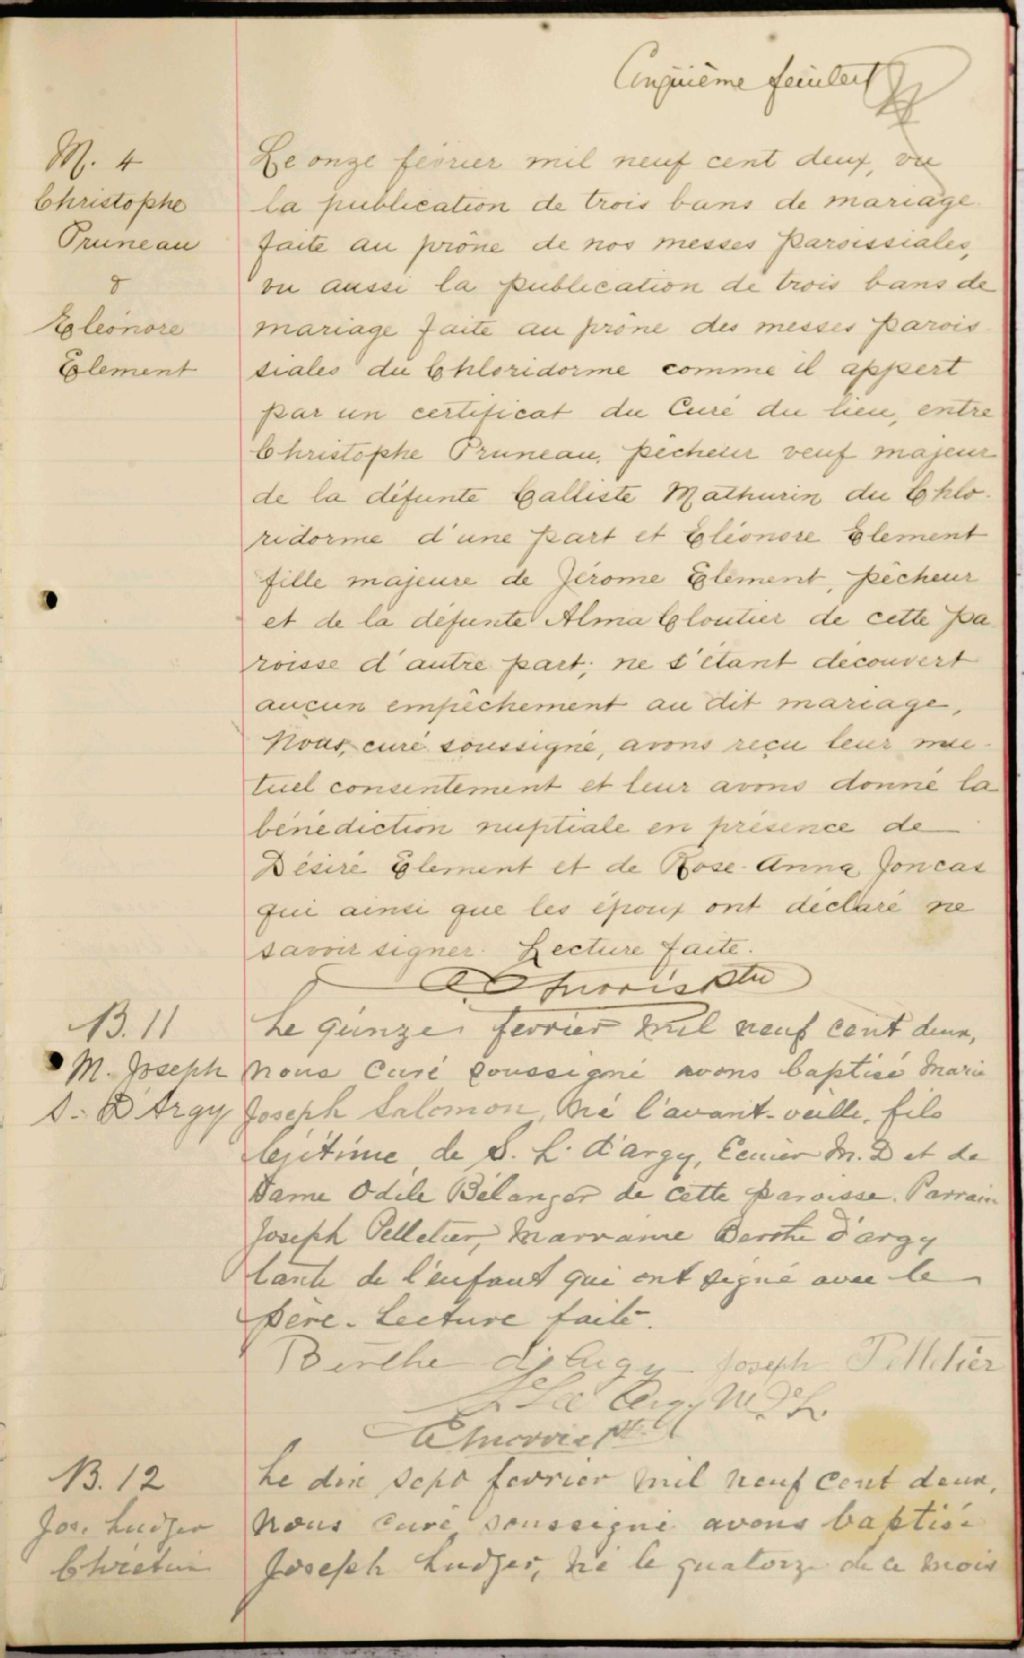 Cinquième feuillet
M. 4
Christophe
Pruneau
&
Eléonore
Element
Le onze février mil neuf cent deux, vu
la publication de trois bans de mariage
faite au prône de nos messes paroissiales,
vu aussi la publication de trois bans de
mariage faite au prône des messes parois
siales du Chloridorme comme il appert
par un certificat du Curé du lieu, entre
Christophe Pruneau, pêcheur veuf majeur
de la défunte Calliste Mathurin du Chlo-
ridorme d'une part et Eléonore Element
fille majeure de Jérome Element, pêcheur
et de la défunte Alma Cloutier de cette pa
roisse d'autre part; ne s'étant découvert
aucun empêchement au dit mariage,
Nous, curé soussigné, avons reçu leur mu-
tuel consentement et leur avons donné la
bénédiction nuptiale en présence de
Désiré Element et de Rose-Anna Joncas
qui ainsi que les époux ont déclaré ne
savoir signer. Lecture faite.
Morris Ptre
B. 11
M. Joseph
S. D'Argy
Le quinze fevrier mil neuf cent deux,
nous Curé soussigné avons baptisé Marie
Joseph Salomon, né l'avant-veille, fils
légitime de S. L. d'argy, Ecuier M. D et de
Dame Odile Bélanger de cette paroisse. Parrain
Joseph Pelletier, Marraine Berthe d'argy
tante de l'enfant qui ont signé avec le
père. Lecture faite.
Berthe d'Argy Joseph Pelletier
Morris Ptre
B. 12
Jos. Ludger
Chrétien
Le dix sept fevrier mil neuf cent deux,
nous curé soussigné avons baptisé
Joseph Ludger, né le quatorze de ce mois